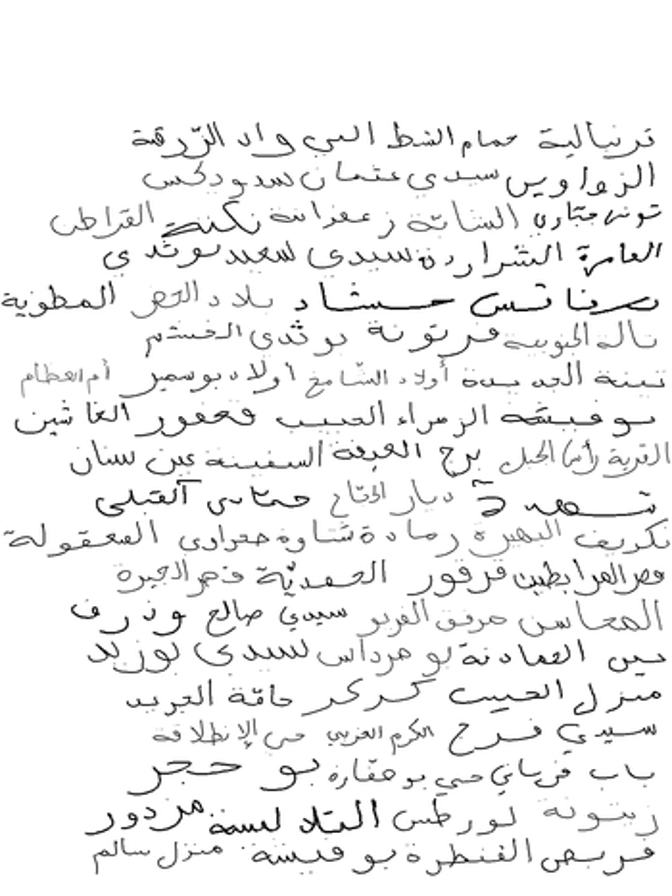 قرنبالية حمام الشط البي واد الزرقة
الزواوين سيدي عثمان سدودكس
تونس حشاد زعفرانة نكتة القراطن
العامرة الشراردة سيدي سعيد بوثدي
صفاقس حشاد بلاد الحضر المطوية
نالة الجنوبية فرتونة بوثدي الخشم
تينة الجديدة أولاد الشامخ أولاد بوسمير أم العظام
بوفيشة الزهراء الحبيب قعفور الغاشين
القرية رأس الجبل برج الحيفة السفينة عين سنان
ديار الحجاج حمادي القبلي
تكريف البحيرة رمادة شتاوة صحراوي المعقولة
قصر المرابطين قرقور الحمدية قصر الجيرة
المحاسن مرفق الفريو سيدي صالح وذرف
بين العمادنة بو مرداس لسيدي بوزيد
منزل الحبيب كركر حامة الجريد
سيدي فرج الكرم الغربي حي الإنطلاقة
باب قرباني حي بوحفارة بو حجر
زيتونة لورطس التلالسة مزدور
قربص القنطرة بو فيشة منزل سالم